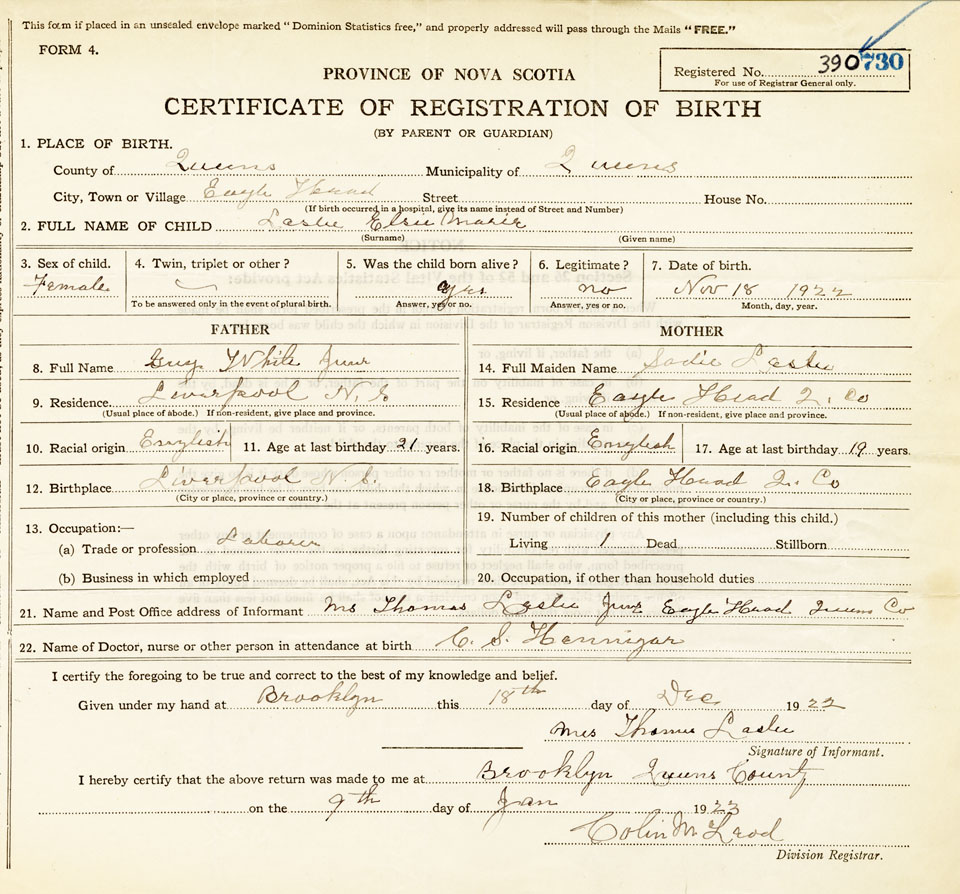 This form if placed in an unsealed envelope marked "Dominion Statistics free," and properly addressed will pass through the Mails "FREE."
FORM 4.
Registered No. 390 730
For use of Registrar General only.
PROVINCE OF NOVA SCOTIA
CERTIFICATE OF REGISTRATION OF BIRTH
(BY PARENT OR GUARDIAN)
1. PLACE OF BIRTH.
County of Queens Municipality of Queens
City, Town or Village Eagle Head Street House No.
(If birth occurred in a hospital, give its name instead of Street and Number)
2. FULL NAME OF CHILD Leslie Elsie Marie
(Surname) (Given name)
3. Sex of child. 4. Twin, triplet or other? 5. Was the child born alive? 6. Legitimate? 7. Date of birth.
Female yes no Nov 18 1922
To be answered only in the event of plural birth. Answer, yes or no. Answer, yes or no. Month, day, year.
FATHER MOTHER
8. Full Name Guy White Junr 14. Full Maiden Name Sadie Leslie
9. Residence Liverpool N. S 15. Residence Eagle Head Q. Co
(Usual place of abode.) If non-resident, give place and province. (Usual place of abode.) If non-resident, give place and province.
10. Racial origin English 11. Age at last birthday 21 years. 16. Racial origin English 17. Age at last birthday 19 years.
12. Birthplace Liverpool N. S. 18. Birthplace Eagle Head Q. Co
(City or place, province or country.) (City or place, province or country.)
13. Occupation:— 19. Number of children of this mother (including this child.)
(a) Trade or profession Laborer Living 1 Dead Stillborn
(b) Business in which employed 20. Occupation, if other than household duties
21. Name and Post Office address of Informant Ms Thomas Leslie Junr Eagle Head Queens Co
22. Name of Doctor, nurse or other person in attendance at birth C. S. Hennigar
I certify the foregoing to be true and correct to the best of my knowledge and belief.
Given under my hand at Brooklyn this 18th day of Dec 1922
Mrs Thomas Leslie
Signature of Informant.
I hereby certify that the above return was made to me at Brooklyn Queens County
on the 9th day of Jan 1923
Colin McLeod
Division Registrar.